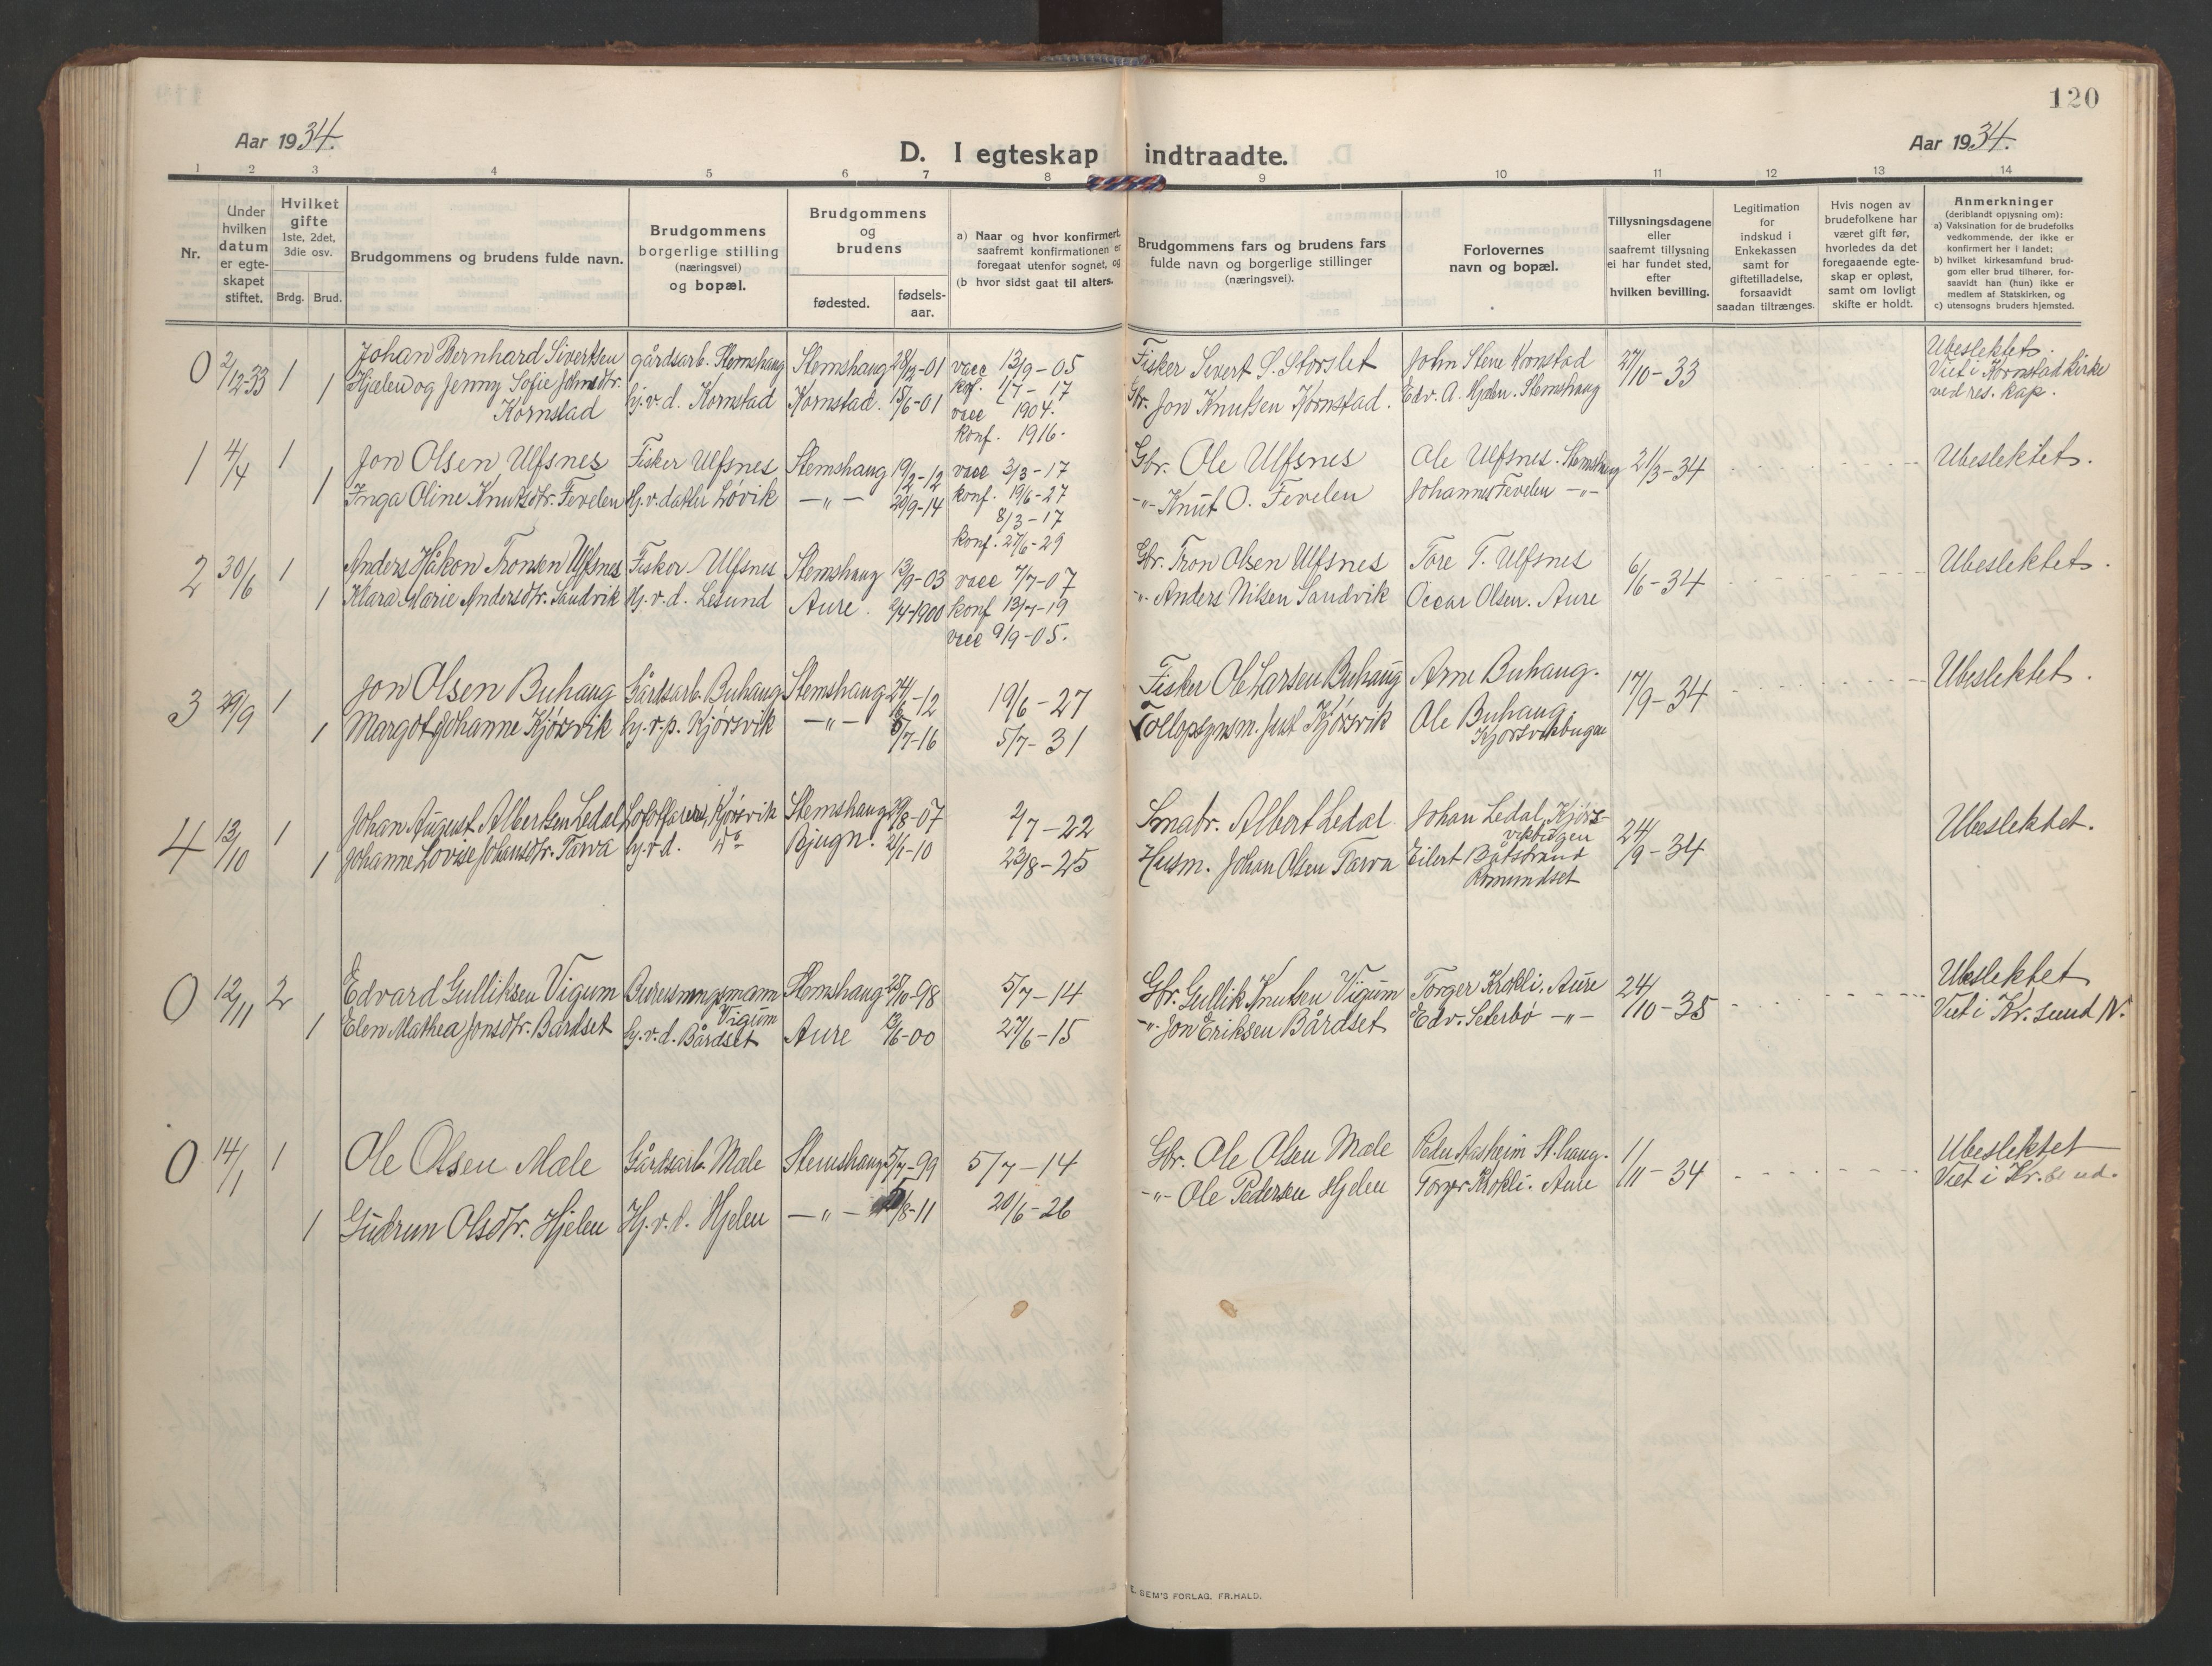 120
Aar 1934.
D. I egteskap indtraadte.
Aar 1934.
1 2 3 4 5 6 7 8 9 10 11 12 13 14
Nr.
Under hvilken datum er egteskapet stiftet.
Hvilket gifte 1ste, 2det, 3die osv.
Brdg. Brud.
Brudgommens og brudens fulde navn.
Brudgommens borgerlige stilling (næringsvei) og bopæl.
Brudgommens og brudens
fødested.
fødselsaar.
a) Naar og hvor konfirmert, saafremt konfirmationen er foregaat utenfor sognet, og
(b hvor sidst gaat til alters.
Brudgommens fars og brudens fars fulde navn og borgerlige stillinger (næringsvei).
Forlovernes navn og bopæl.
Tillysningsdagene eller saafremt tillysning ei har fundet sted, efter hvilken bevilling.
Legitimation for indskud i Enkekassen samt for giftetilladelse, forsaavidt saadan tiltrænges.
Hvis nogen av brudefolkene har været gift før, hvorledes da det foregaaende egteskap er opløst, samt om lovligt skifte er holdt.
Anmerkninger
(deriblandt opjysning om):
a) Vaksination for de brudefolks vedkommende, der ikke er konfirmert her i landet;
b) hvilket kirkesamfund brudgom eller brud tilhører, forsaavidt han (hun) ikke er medlem af Statskirken, og
c) utensogns bruders hjemsted.
0 2/12-33 1 Johan Bernhard Sivertsen gårdsarb. Stemshaug Stemshaug 28/2-01 vacc 13/9-05 Fisker Sivert S. Storslet John Stene Kornstad 27/10-33 Ubeslektet.
1 Hjælen og Jenny Sofie Johnsdtr. hj.v.d. Kornstad Kornstad. 15/6-01 kof. 1/7-17 Gbr. Jon Knutsen Kornstad. Edv. A. Hjelen. Stemshaug Viet i Kornstad kirke
Kornstad vacc 1904. ved res. kap.
konf. 1916.
1 4/4 1 Jon Olsen Ulfsnes Fisker Ulfsnes Stemshaug 19/2-12 vacc 3/3-17 Gbr. Ole Ulfsnes Ole Ulfsnes. Stemshaug 21/3-34 Ubeslektet.
1 Inga Oline Knutsdtr. Fevelen Hj.v.datter Løvik -"- 20/9-14 konf. 19/6-27 -"- Knut O. Fevelen Johannes Fevelen -"-
8/3-17
konf. 27/6-29
2 30/6 1 Anders Håkon Tronsen Ulfsnes Fisker Ulfsnes Stemshaug 13/9-03 vacc 7/7-07 Gbr. Tron Olsen Ulfsnes Tore T. Ulfsnes 6/6-34 Ubeslektet.
1 Klara Marie Andersdtr. Sandvik Hj.v.d. Lesund Aure. 2/4-1900 konf 13/7-19 "- Anders Nilsen Sandvik Oscar Olsen. Aure
vacc 9/9-05.
3 29/9 1 Jon Olsen Buhaug Gårdsarb. Buhaug Stemshaug 24/6-12 19/6-27 Fisker Ole Larsen Buhaug Arne Buhaug. 17/9-34 Ubeslektet.
1 Margot Johanne Kjørsvik hj.v.p. Kjørsvik -"- /7-16 5/7-31 Tollopsynsm. Just Kjørsvik Ole Buhaug.
Kjørsvikbugen
4 13/10 1 Johan August Albertsen Ledal Kjørsvik Stemshaug 29/8-07 2/7-22 Smabr. Albert Ledal Johan Ledal, Kjørs- 24/9-34 Ubeslektet.
vikbugen
1 Johanne Lovise Johansdtr. Tarva hj.v.d. Do Bjugn. 21/1-10 23/8-25 Husm. Johan Olsen Tarva Eilert Båtstrand
Romundset
0 12/11 2 Edvard Gulliksen Vigum Bureisningsmann Stemshaug 25/10-98 5/7-14 Gbr. Gullik Knutsen Vigum Torger Krokli. Aure 24/10-35 Ubeslektet
Vigum
1 Elen Mathea Jonsdtr. Bårdset hj.v.d. Bårdset Aure 13/6-00 27/6-15 "- Jon Eriksen Bårdset Edv. Seterbø -"- Viet i Kr.sund N.
0 14/1 1 Ole Olsen Mæle Gårdsarb. Mæle Stemshaug 5/7-99 5/7-14 Gbr. Ole Olsen Mæle Peder Aasheim St.haug. 1/11-34 Ubeslektet
1 Gudrun Olsdtr. Hjelen Hj.v.d. Hjelen -"- /8-11 20/6-26 -"- Ole Pedersen Hjelen Torger Krokli. Aure Viet i Kr.sund.
E. SEM'S FORLAG. FR.HALD.